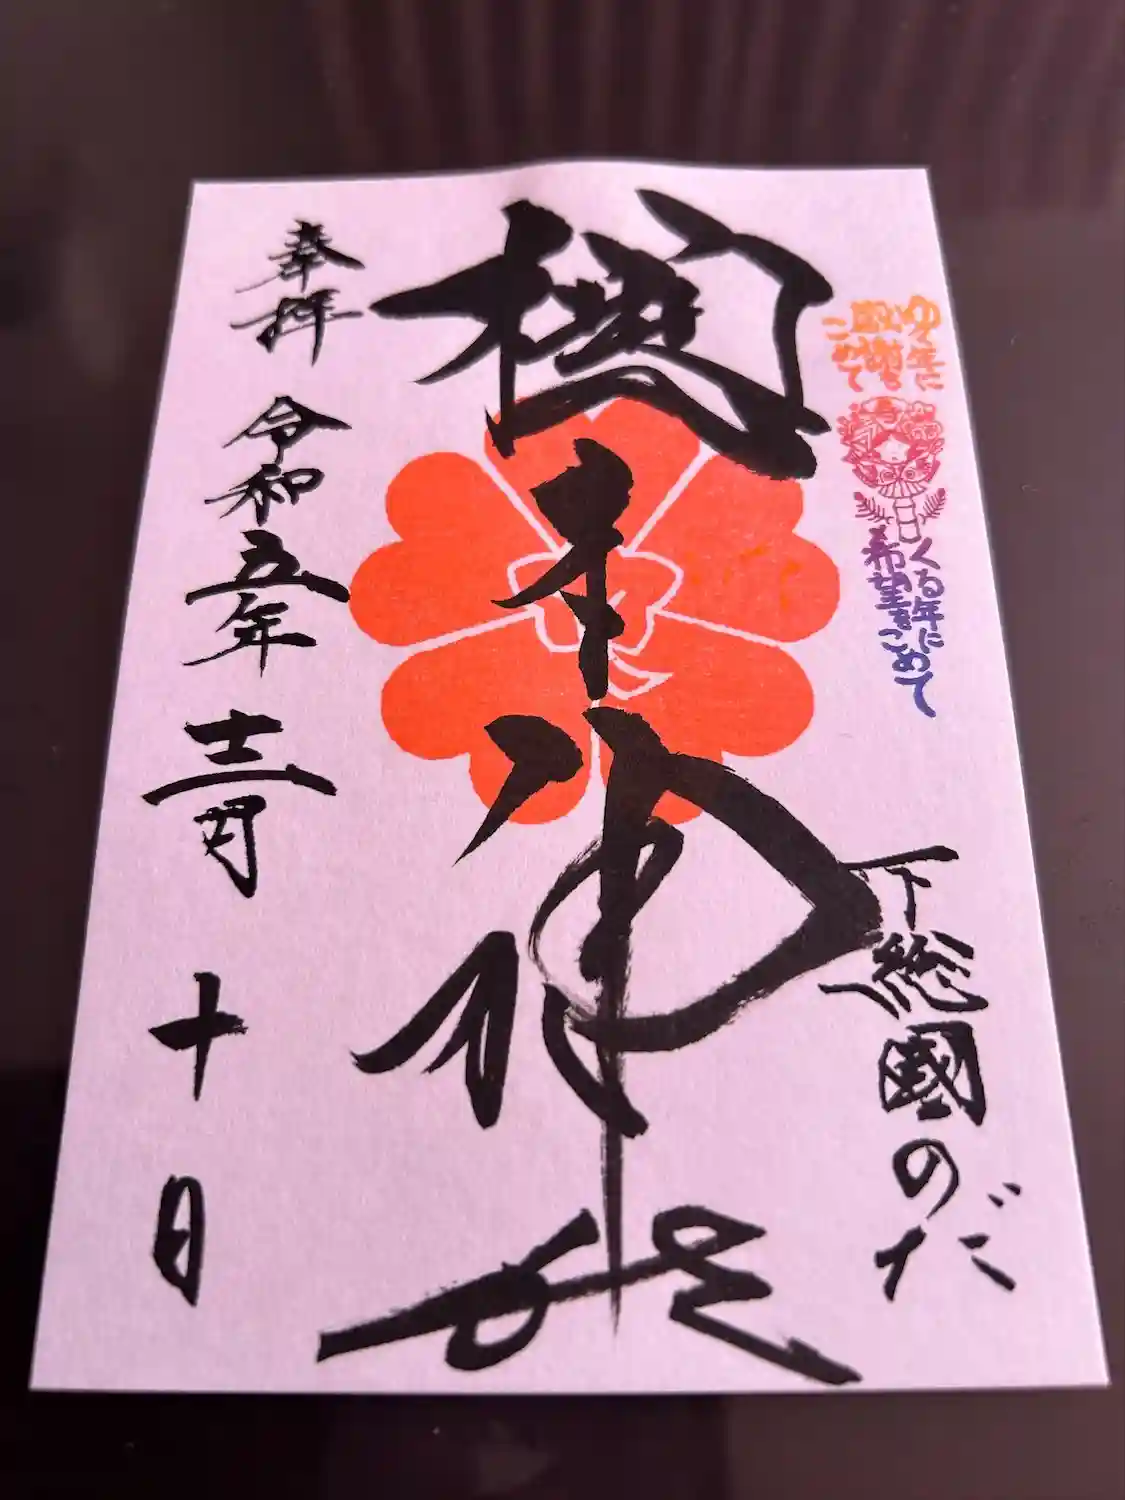 ゆく年に
感謝を
こめて
寿
くる年に
希望をこめて
下総國のだ
櫻木神社
奉拝 令和五年 十二月 十日